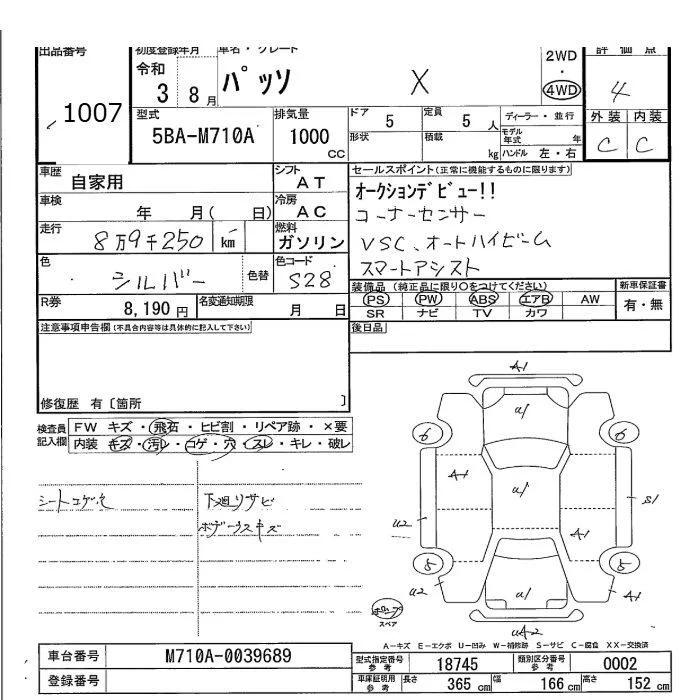 出品番号
1007
初度登録年月
令和 3年 8月
車名・グレード
パッソ X
2WD
・
4WD
評価点
4
型式
5BA-M710A
排気量
1000
CC
ドア
5
定員
5人
形状
積載
kg
ディーラー・並行
モデル年式 年
ハンドル 左・右
外装 内装
C C
車歴
自家用
シフト
AT
車検
年 月( 日)
冷房
AC
走行
8万9千250 km
燃料
ガソリン
色
シルバー
色替
色コード
S28
R券
8,190 円
名変通知期限
月 日
セールスポイント(正常に機能するものに限ります)
オークションデビュー!!
コーナーセンサー
VSC、オートハイビーム
スマートアシスト
装備品 (純正品に限り〇をつけてください)
PS PW ABS エアB AW
SR ナビ TV カワ
新車保証書
有・無
後日品
注意事項申告欄(不具合内容等は具体的に記入して下さい)
修復歴 有〔箇所 〕
検査員記入欄
FW キズ・飛石・ヒビ割・リペア跡・×要
内装 キズ・汚レ・コゲ・穴・スレ・キレ・破レ
シートコゲ穴
下廻りサビ
ボデーウスキズ
A1
a1
6 6
A1 a1 S1
u2 A1
5 5
u2 a1 A1
uA2
スペア
A-キズ E-エクボ U-凹み W-補修跡 S-サビ C-腐食 XX-交換済
車台番号
M710A-0039689
登録番号
型式指定番号 参考
18745
類別区分番号 参考
0002
車庫証明用 参考
長さ 365 cm 幅 166 cm 高さ 152 cm